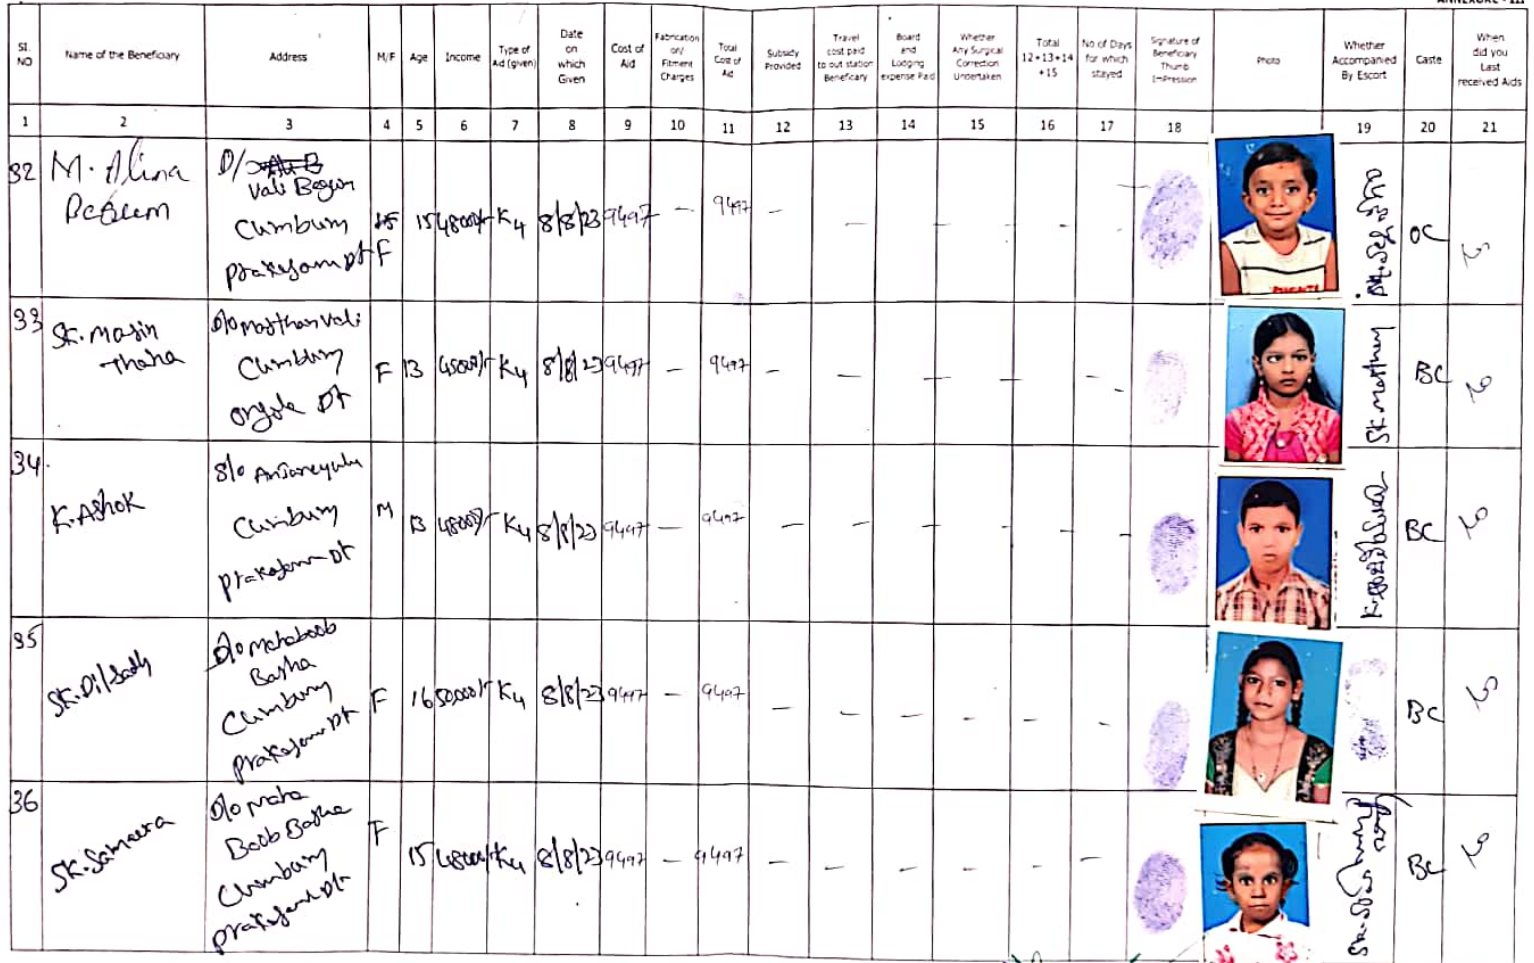 ANNEXURE - III
Sl. NO | Name of the Beneficiary | Address | M/F | Age | Income | Type of Aid (given) | Date on which Given | Cost of Aid | Fabrication on/ Fitment Charges | Total Cost of Aid | Subsidy Provided | Travel cost paid to out station Beneficiary | Board and Lodging expense Paid | Whether Any Surgical Correction Undertaken | Total 12+13+14 +15 | No of Days for which stayed | Signature of Beneficiary Thumb Impression | Photo | Whether Accompanied By Escort | Caste | When did you Last received Aids
1 2 3 4 5 6 7 8 9 10 11 12 13 14 15 16 17 18 19 20 21
32 M. Alina Begum
D/
Vali Begum
Cumbum
Prakasam Dt
F 15 48000/- K4 8/8/23 9497 - 9497 - - - - - OC
33 Sk. Masin Thaha
D/o Masthan Vali
Cumbum
Ongole Dt
F 13 45000/- K4 8/8/23 9497 - 9497 - - - - - - Sk Masthan BC
34 K. Ashok
S/o Anjaneyulu
Cumbum
Prakasam Dt
M 13 48000/- K4 8/8/23 9497 - 9497 - - - - - - BC
35 Sk. Dilsadh
D/o Mahaboob
Basha
Cumbum
Prakasam Dt
F 16 50,000/- K4 8/8/23 9497 - 9497 - - - - - - BC
36 Sk. Sameera
D/o Maha
Boob Basha
Cumbum
Prakasam Dt
F 15 48000/- K4 8/8/23 9497 - 9497 - - - - - - BC